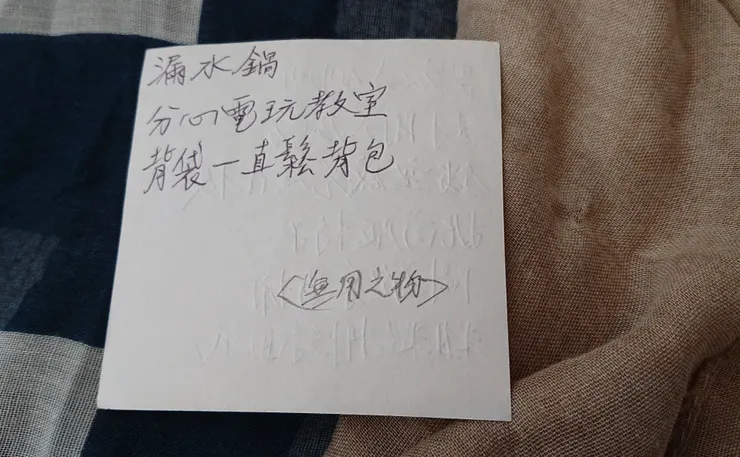 漏水鍋
分心電玩教室
背袋一直鬆背包
<無用之物>